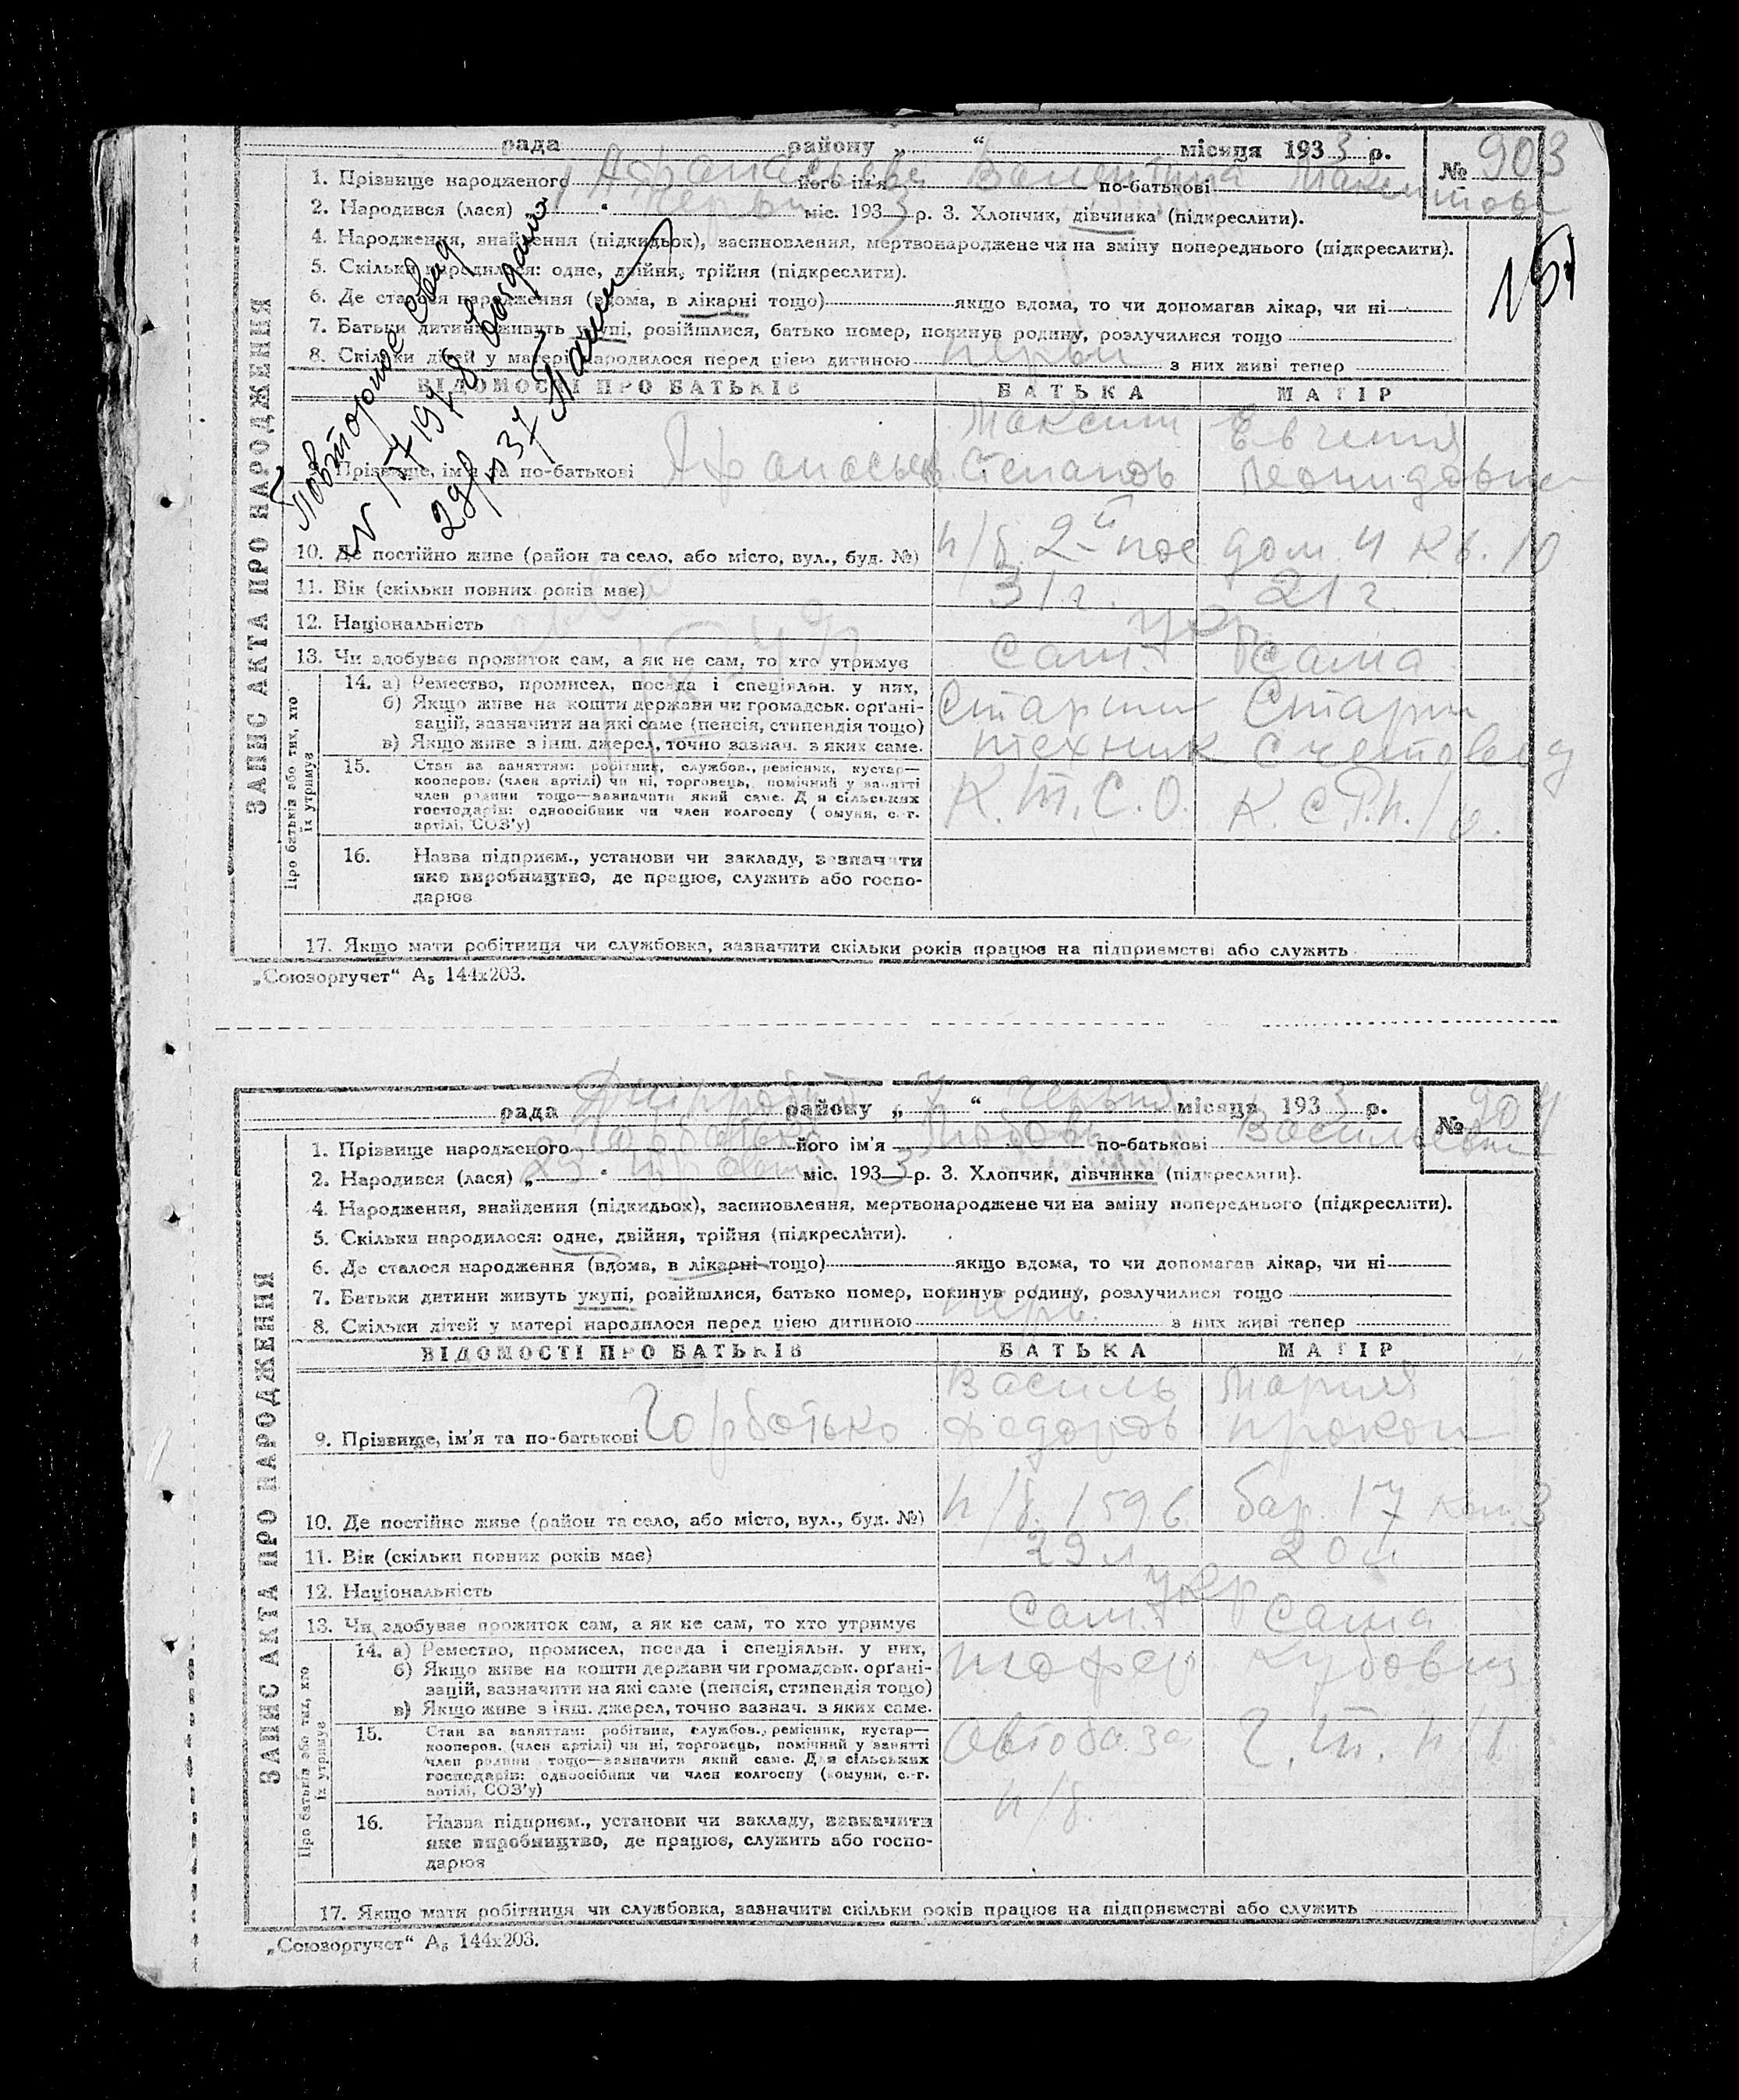 рада району „ “ місяця 1933 р.
№ 903
1. Прізвище народженого Афанасьева його ім'я Валентина по-батькові Максимовн
2. Народився (лася) 1 червн міс. 1933 р. 3. Хлопчик, дівчинка (підкреслити).
4. Народження, знайдення (підкидьок), засиновлення, мертвонароджене чи на зміну попереднього (підкреслити).
5. Скільки народилося: одне, двійня, трійня (підкреслити).
6. Де сталося народження (вдома, в лікарні тощо) якщо вдома, то чи допомагав лікар, чи ні
7. Батьки дитини живуть укупі, розійшлися, батько помер, покинув родину, розлучилися тощо
8. Скільки дітей у матері народилося перед цією дитиною перви з них живі тепер
Повторное свид
выдано
ЗАПИС АКТА ПРО НАРОДЖЕННЯ
ВІДОМОСТІ ПРО БАТЬКІВ БАТЬКА МАТІР
Максим Евгения
9. Прізвище, ім'я та по-батькові Афанасьев Степанов Леонидовна
10. Де постійно живе (район та село, або місто, вул., буд. №) п/б 2й пос дом 4 кв. 10
11. Вік (скільки повних років має) 31 г. 21 г.
12. Національність укр
13. Чи здобуває прожиток сам, а як не сам, то хто утримує сам. Сама
Про батьків або тих, хто їх утримує
14. а) Ремество, промисел, посада і спеціяльн. у них,
б) Якщо живе на кошти держави чи громадськ. орґані-
зацій, зазначити на які саме (пенсія, стипендія тощо)
в) Якщо живе з інш. джерел, точно зазнач. з яких саме.
Старший Старш
техник счетовод
15. Стан за заняттям: робітник, службов., ремісник, кустар—
кооперов. (член артілі) чи ні, торговець, помічний у занятті
член родини тощо—зазначити який саме. Для сільських
господарів: одноосібник чи член колгоспу (комуни, с.-г.
артілі, СОЗ'у)
К.т.С.О.
16. Назва підприєм., установи чи закладу, зазначити
яке виробництво, де працює, служить або госпо-
дарює
17. Якщо мати робітниця чи службовка, зазначити скільки років працює на підприємстві або служить
„Союзоргучет“ А₅ 144х203.
рада району „ “ червня місяця 1933 р.
№ 904
1. Прізвище народженого Горбатько його ім'я Любовь по-батькові Васильевн
2. Народився (лася) „23“ травн міс. 1933 р. 3. Хлопчик, дівчинка (підкреслити).
4. Народження, знайдення (підкидьок), засиновлення, мертвонароджене чи на зміну попереднього (підкреслити).
5. Скільки народилося: одне, двійня, трійня (підкреслити).
6. Де сталося народження (вдома, в лікарні тощо) якщо вдома, то чи допомагав лікар, чи ні
7. Батьки дитини живуть укупі, розійшлися, батько помер, покинув родину, розлучилися тощо
8. Скільки дітей у матері народилося перед цією дитиною перв. з них живі тепер
ЗАПИС АКТА ПРО НАРОДЖЕННЯ
ВІДОМОСТІ ПРО БАТЬКІВ БАТЬКА МАТІР
Василь Мария
9. Прізвище, ім'я та по-батькові Горбатько Федоров Прокоп
10. Де постійно живе (район та село, або місто, вул., буд. №) п/б. бар. 17 ком. 3
11. Вік (скільки повних років має) 29 л 20 л
12. Національність укр
13. Чи здобуває прожиток сам, а як не сам, то хто утримує сам. Сама
Про батьків або тих, хто їх утримує
14. а) Ремество, промисел, посада і спеціяльн. у них,
б) Якщо живе на кошти держави чи громадськ. орґані-
зацій, зазначити на які саме (пенсія, стипендія тощо)
в) Якщо живе з інш. джерел, точно зазнач. з яких саме.
шофер
15. Стан за заняттям: робітник, службов., ремісник, кустар—
кооперов. (член артілі) чи ні, торговець, помічний у занятті
член родини тощо—зазначити який саме. Для сільських
господарів: одноосібник чи член колгоспу (комуни, с.-г.
артілі, СОЗ'у)
Автобаза
п/б.
16. Назва підприєм., установи чи закладу, зазначити
яке виробництво, де працює, служить або госпо-
дарює
17. Якщо мати робітниця чи службовка, зазначити скільки років працює на підприємстві або служить
„Союзоргучет“ А₅ 144х203.